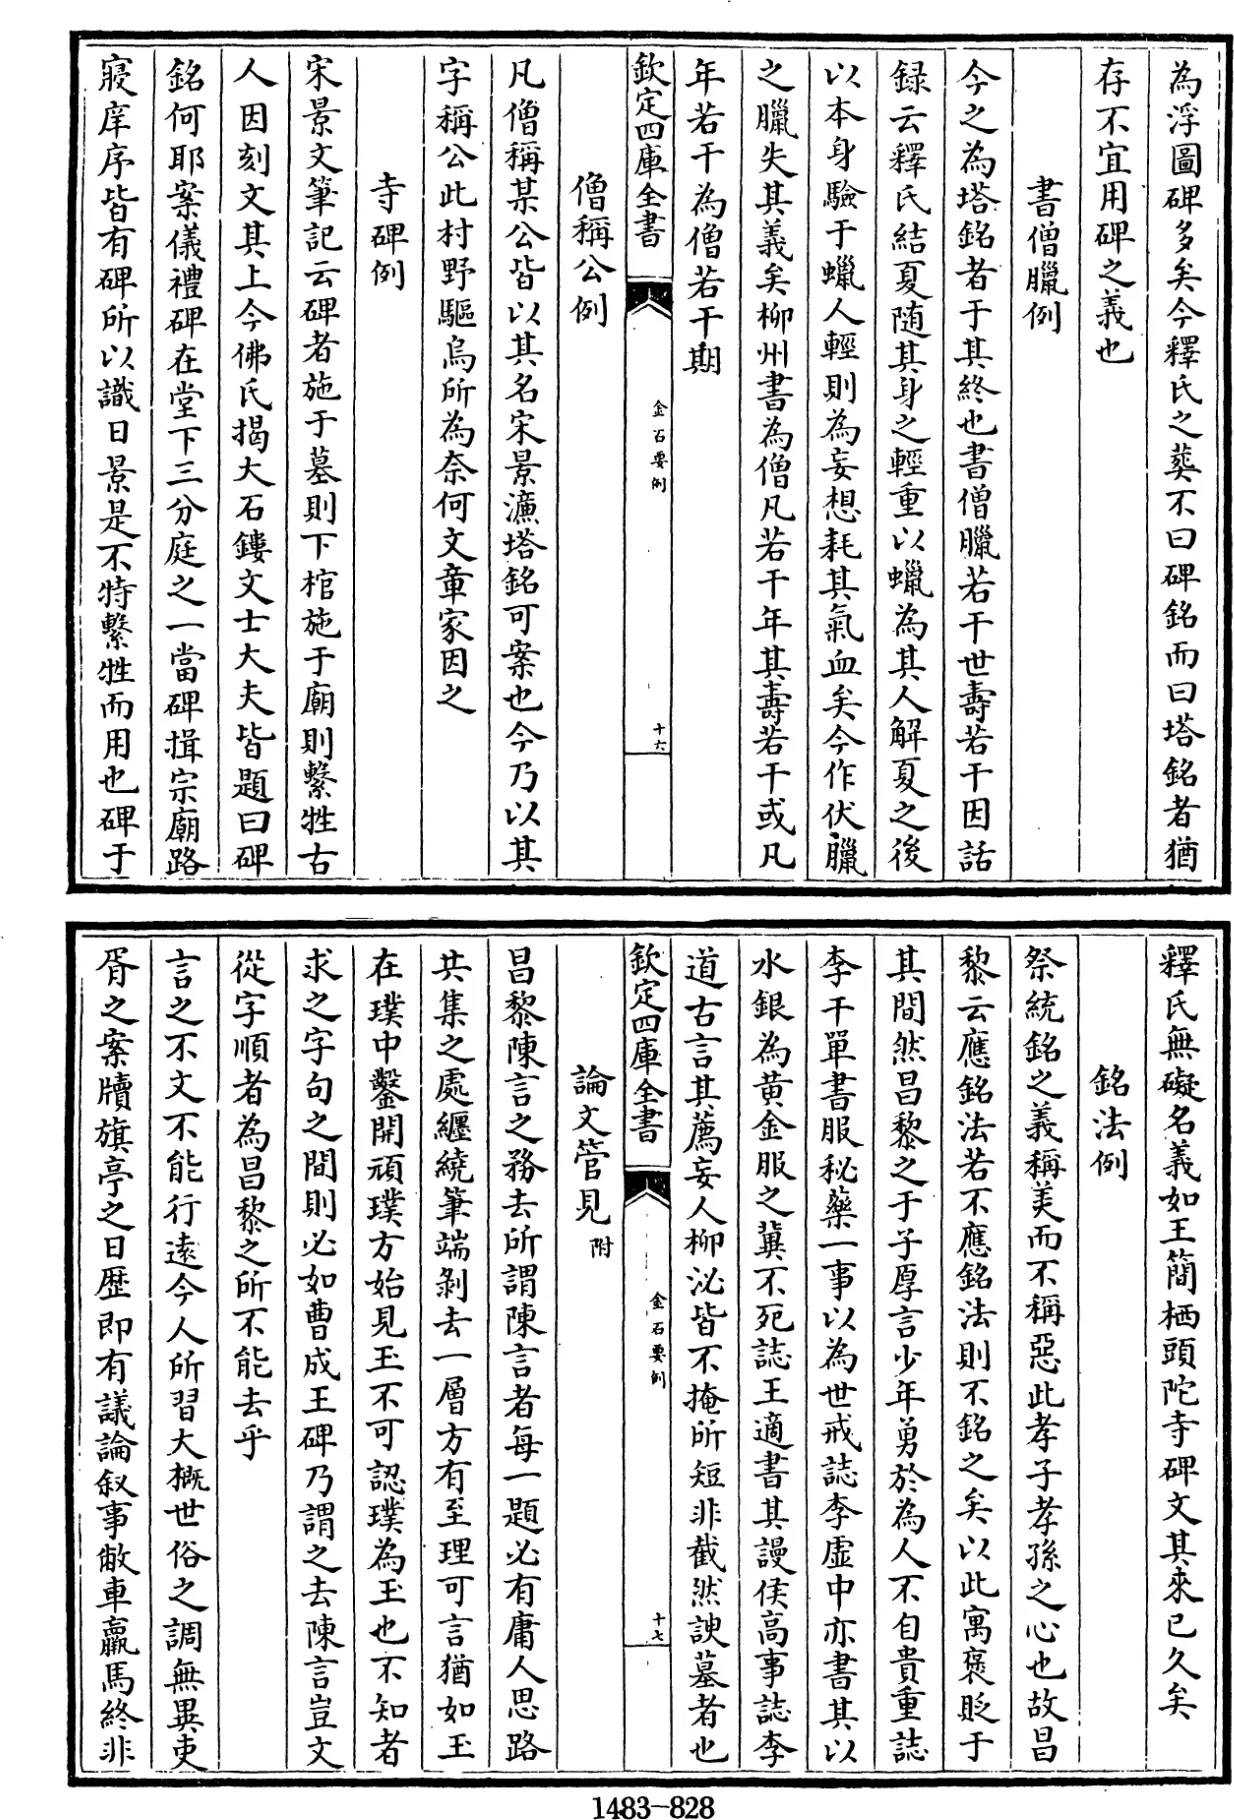 為浮圖碑多矣今釋氏之葬不曰碑銘而曰塔銘者猶
存不宜用碑之義也
書僧臘例
今之為塔銘者于其終也書僧臘若干世壽若干因話
録云釋氏結夏随其身之輕重以蠟為其人解夏之後
以本身驗于蠟人輕則為妄想耗其氣血矣今作伏臘
之臘失其義矣柳州書為僧凡若干年其壽若干或凡
年若干為僧若干期
欽定四庫全書
金石要例
十六
僧稱公例
凡僧稱某公皆以其名宋景濂塔銘可案也今乃以其
字稱公此村野驅烏所為奈何文章家因之
寺碑例
宋景文筆記云碑者施于墓則下棺施于廟則繫牲古
人因刻文其上今佛氏揭大石鏤文士大夫皆題曰碑
銘何耶案儀禮碑在堂下三分庭之一當碑揖宗廟路
寢庠序皆有碑所以識日景是不特繫牲而用也碑于
釋氏無礙名義如王簡栖頭陀寺碑文其來已久矣
銘法例
祭統銘之義稱美而不稱惡此孝子孝孫之心也故昌
黎云應銘法若不應銘法則不銘之矣以此寓褒貶于
其間然昌黎之于子厚言少年勇於為人不自貴重誌
李干單書服秘藥一事以為世戒誌李虛中亦書其以
水銀為黄金服之冀不死誌王適書其謾侯高事誌李
道古言其薦妄人柳泌皆不掩所短非截然諛墓者也
欽定四庫全書
金石要例
十七
論文管見附
昌黎陳言之務去所謂陳言者每一題必有庸人思路
共集之處纏繞筆端剝去一層方有至理可言猶如玉
在璞中鑿開頑璞方始見玉不可認璞為玉也不知者
求之字句之間則必如曹成王碑乃謂之去陳言豈文
從字順者為昌黎之所不能去乎
言之不文不能行遠今人所習大概世俗之調無異吏
胥之案牘旗亭之日歷即有議論叙事敝車羸馬終非
1483-828